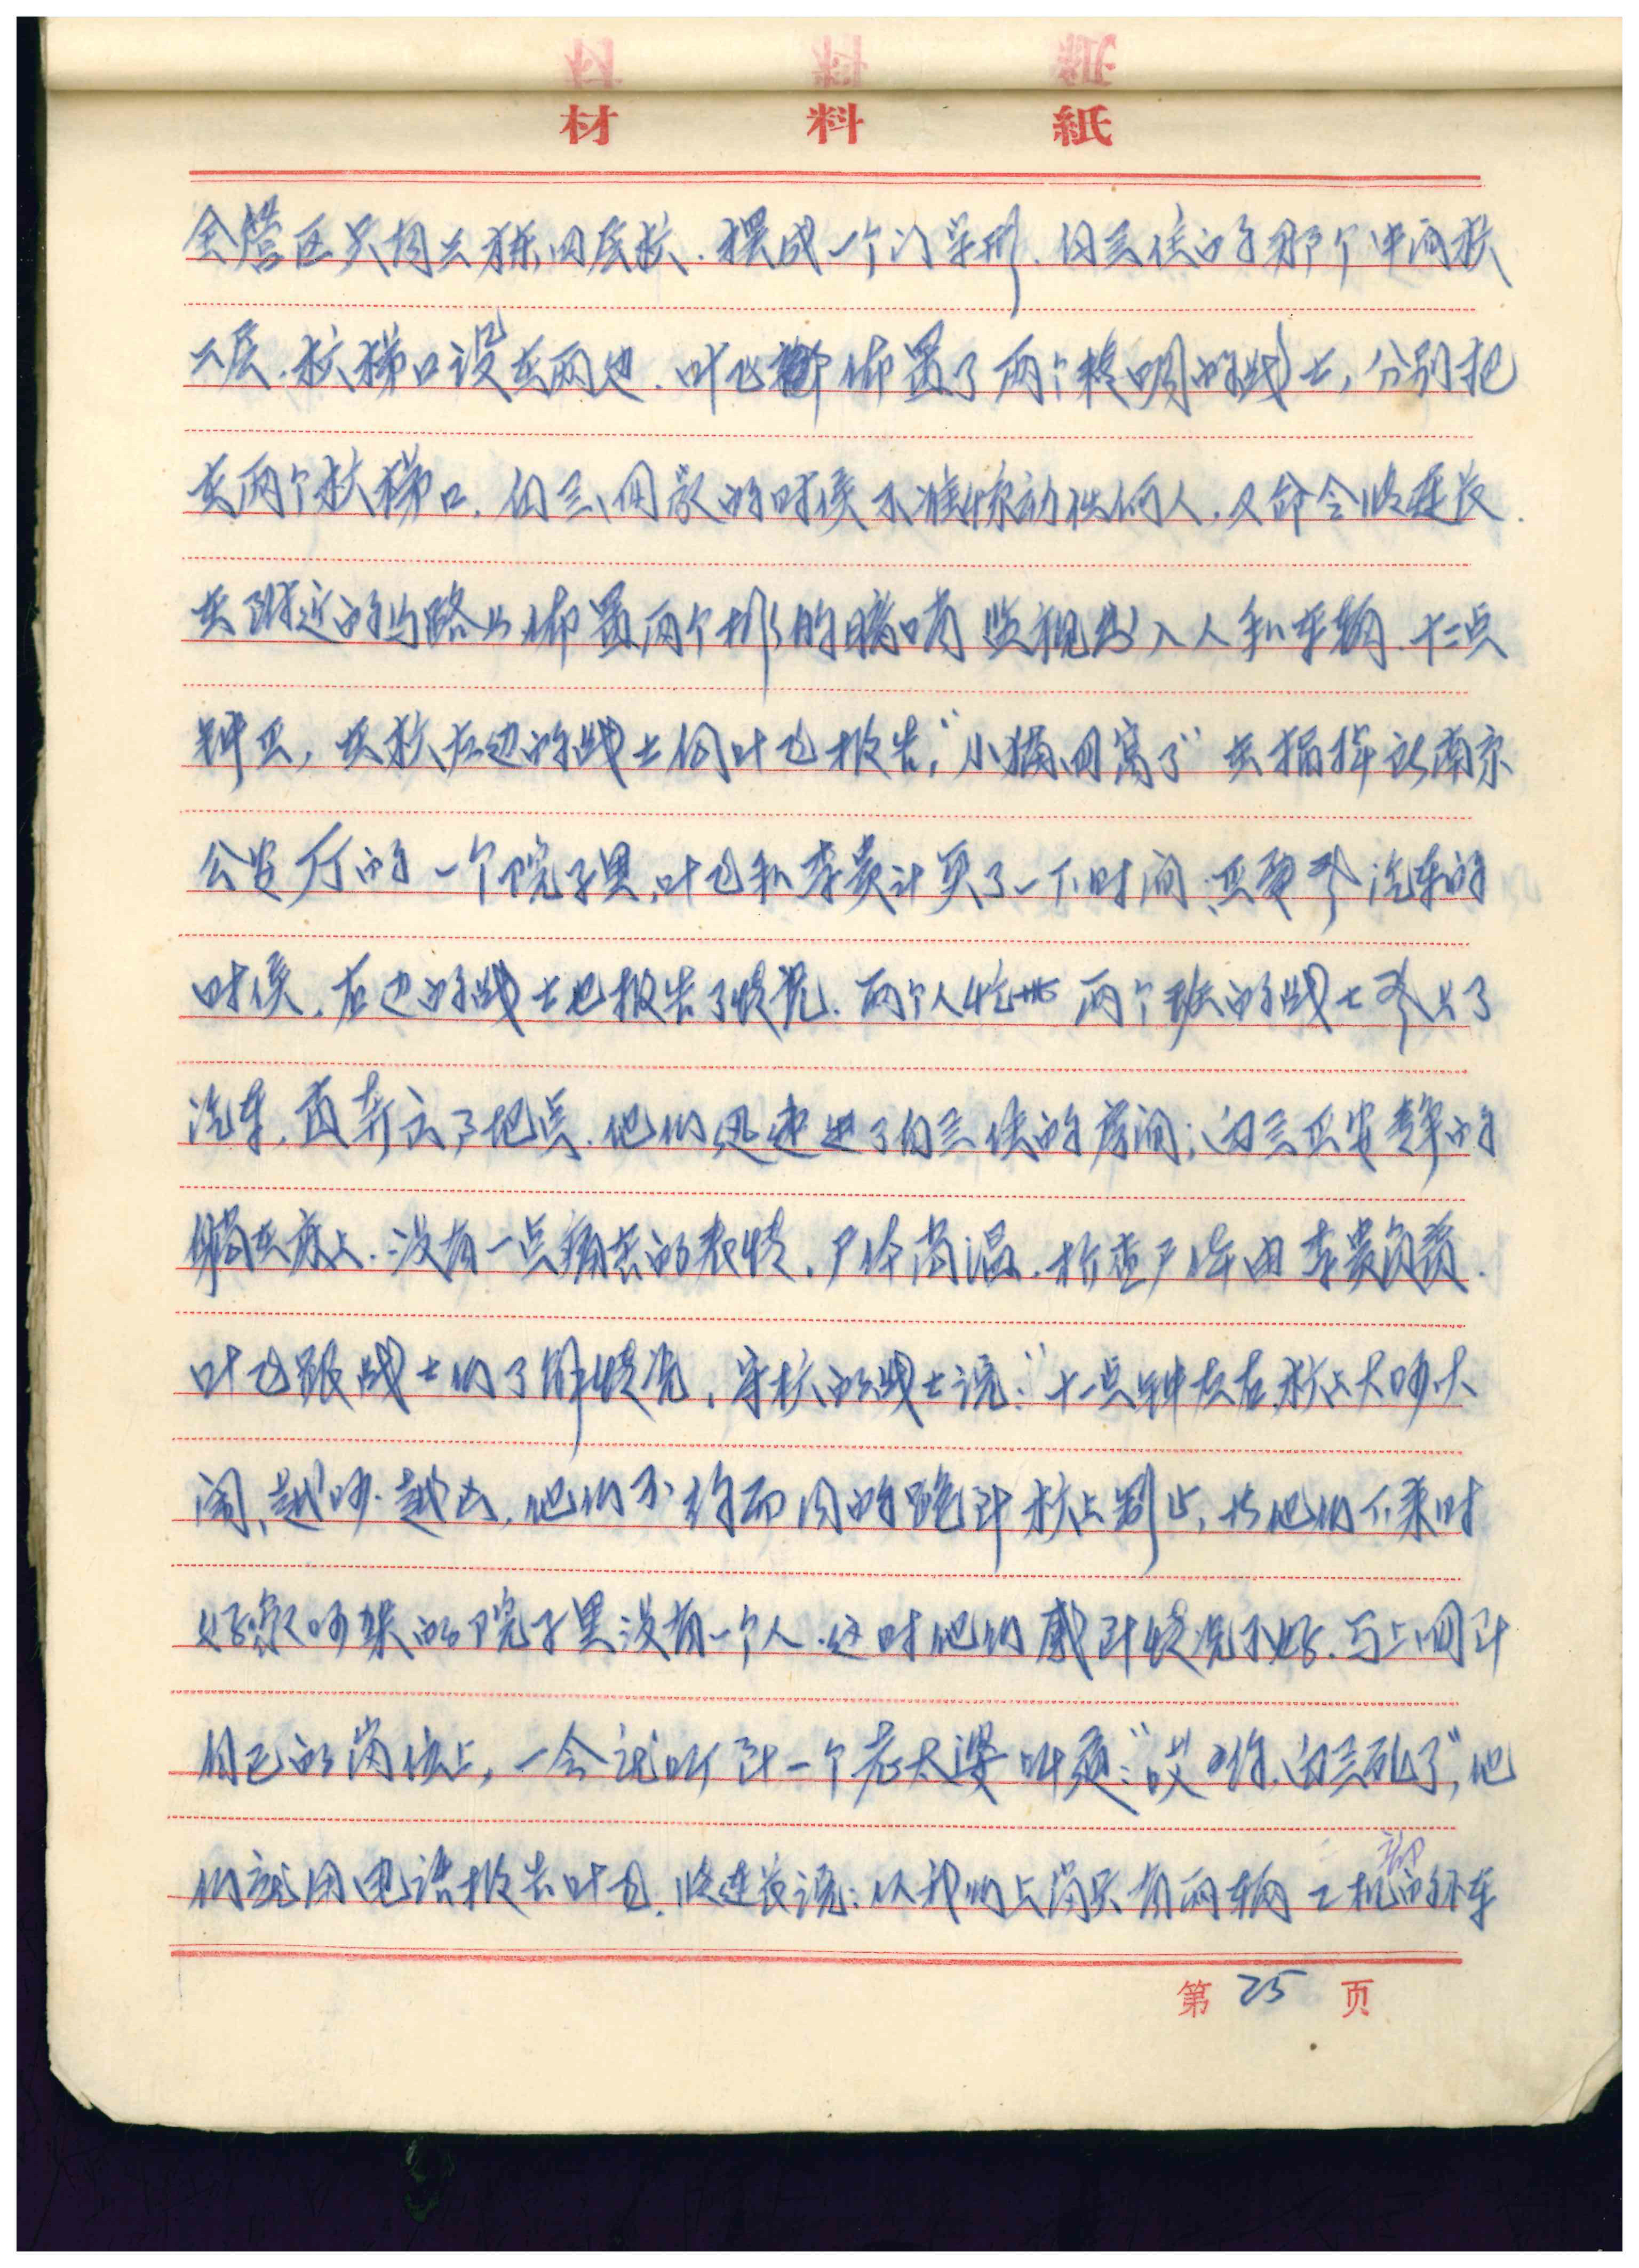 材料紙
全营区只有三栋四层楼.摆成一个门字形.白三住的那个中间楼
二层.楼梯口设在两边.叶飞佈置了两个精明的战士,分别把
在两个楼梯口.白三回家的时候不准惊动任何人.又命令收连长.
在附近的马路上佈置两个排的暗哨监视出入人和车辆.十二点
钟正,在楼左边的战士向叶飞报告,“小猫回窝了”在指挥部南京
公安厅的一个院子里,叶飞和李贵计算了一下时间,正要登汽车的
时候.右边的战士也报告了情况.两个人忙带两个班的战士登上了
汽车.直奔出事地点.他们迅速进了白三住的房间;白三正安静的
躺在床上.没有一点痛苦的表情.尸体尚温.检查尸体由李贵负责.
叶飞跟战士们了解情况,守楼的战士说:“十一点钟左右.楼上大吵大
闹,越吵.越凶.他们不约而同的跑到楼上制止,等他们下来时
好象吵架的院子里没有一个人.这时他们感到情况不好.马上回到
自己的岗位上,一会就听到一个老太婆叫道:“哎哟.白三死了”,他
们就用电话报告叶飞.收连长说:从我们上岗只有两辆二机部的轿车
第25页